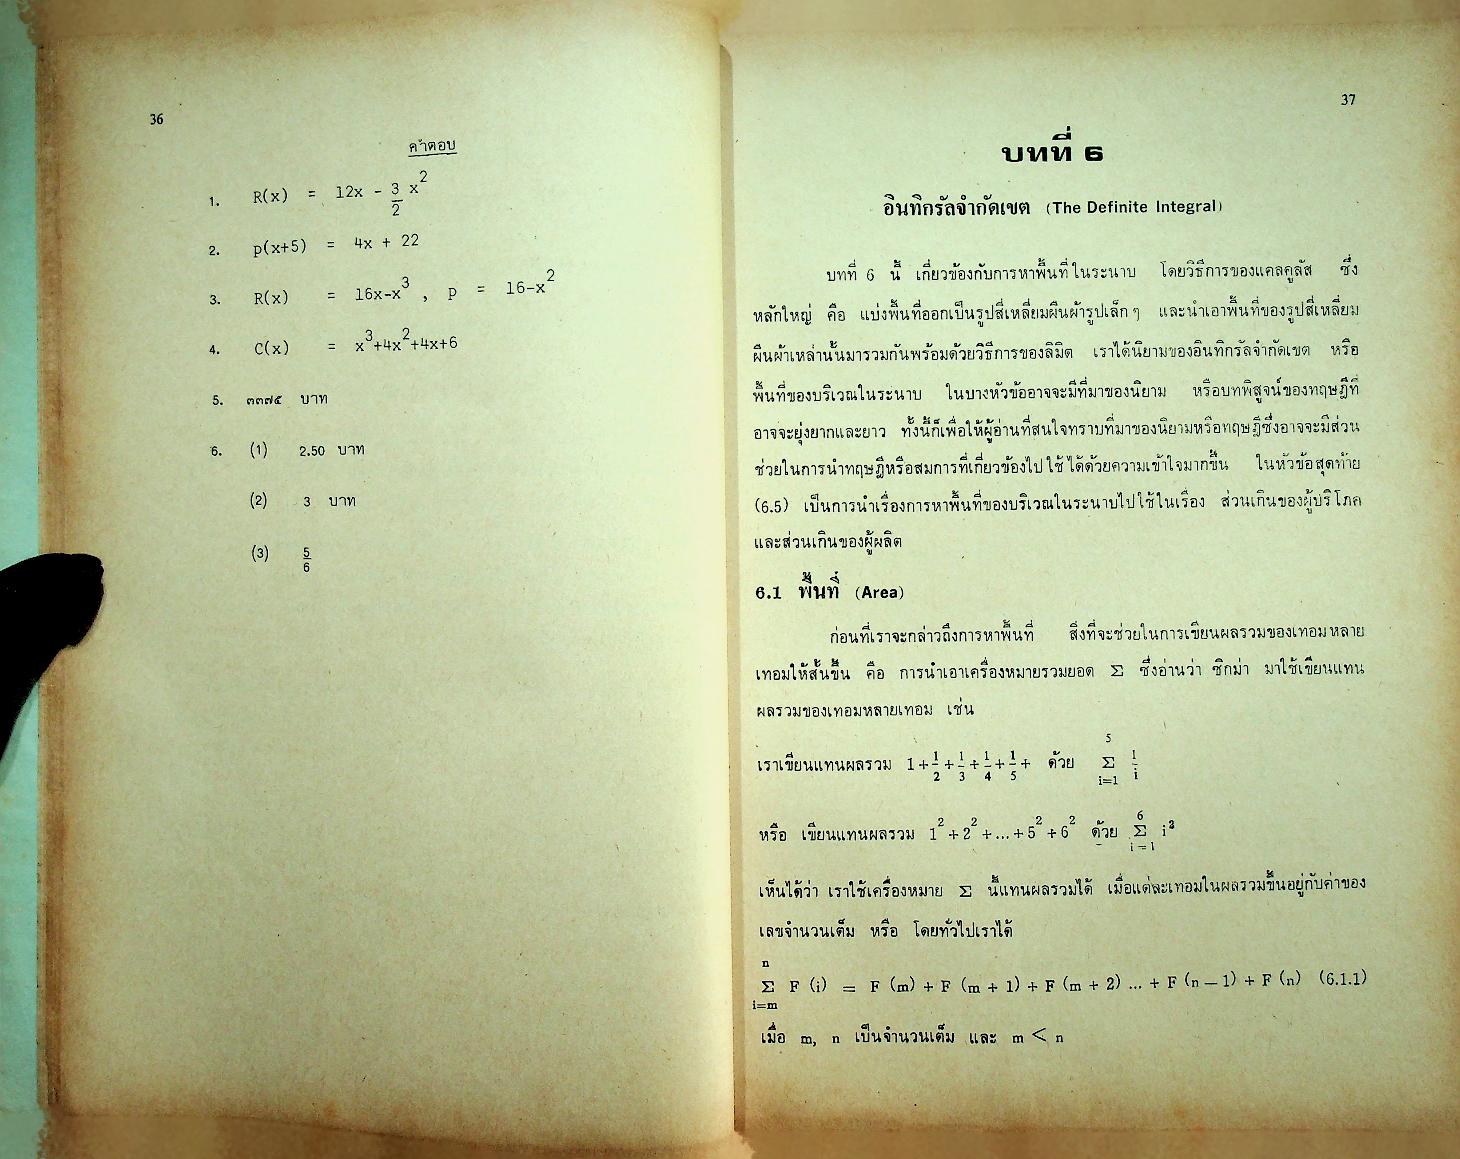 36
คำตอบ
1. R(x) = 12x - 3/2 x²
2. p(x+5) = 4x + 22
3. R(x) = 16x-x³ , p = 16-x²
4. C(x) = x³+4x²+4x+6
5. ๓๓๗๕ บาท
6. (1) 2.50 บาท
(2) 3 บาท
(3) 5/6
37
บทที่ 6
อินทิกรัลจำกัดเขต (The Definite Integral)
บทที่ 6 นี้ เกี่ยวข้องกับการหาพื้นที่ในระนาบ โดยวิธีการของแคลคูลัส ซึ่ง
หลักใหญ่ คือ แบ่งพื้นที่ออกเป็นรูปสี่เหลี่ยมผืนผ้ารูปเล็กๆ และนำเอาพื้นที่ของรูปสี่เหลี่ยม
ผืนผ้าเหล่านั้นมารวมกันพร้อมด้วยวิธีการของลิมิต เราได้นิยามของอินทิกรัลจำกัดเขต หรือ
พื้นที่ของบริเวณในระนาบ ในบางหัวข้ออาจจะมีที่มาของนิยาม หรือบทพิสูจน์ของทฤษฎีที่
อาจจะยุ่งยากและยาว ทั้งนี้ก็เพื่อให้ผู้อ่านที่สนใจทราบที่มาของนิยามหรือทฤษฎีซึ่งอาจจะมีส่วน
ช่วยในการนำทฤษฎีหรือสมการที่เกี่ยวข้องไปใช้ได้ด้วยความเข้าใจมากขึ้น ในหัวข้อสุดท้าย
(6.5) เป็นการนำเรื่องการหาพื้นที่ของบริเวณในระนาบไปใช้ในเรื่อง ส่วนเกินของผู้บริโภค
และส่วนเกินของผู้ผลิต
6.1 พื้นที่ (Area)
ก่อนที่เราจะกล่าวถึงการหาพื้นที่ สิ่งที่จะช่วยในการเขียนผลรวมของเทอมหลาย
เทอมให้สั้นขึ้น คือ การนำเอาเครื่องหมายรวมยอด Σ ซึ่งอ่านว่า ซิกม่า มาใช้เขียนแทน
ผลรวมของเทอมหลายเทอม เช่น
เราเขียนแทนผลรวม 1+1/2+1/3+1/4+1/5+ ด้วย 5 Σ i=1 1/i
หรือ เขียนแทนผลรวม 1²+2²+...+5²+6² ด้วย 6 Σ i=1 i²
เห็นได้ว่า เราใช้เครื่องหมาย Σ นี้แทนผลรวมได้ เมื่อแต่ละเทอมในผลรวมขึ้นอยู่กับค่าของ
เลขจำนวนเต็ม หรือ โดยทั่วไปเราได้
n Σ i=m F (i) = F (m) + F (m + 1) + F (m + 2) ... + F (n - 1) + F (n) (6.1.1)
เมื่อ m, n เป็นจำนวนเต็ม และ m < n